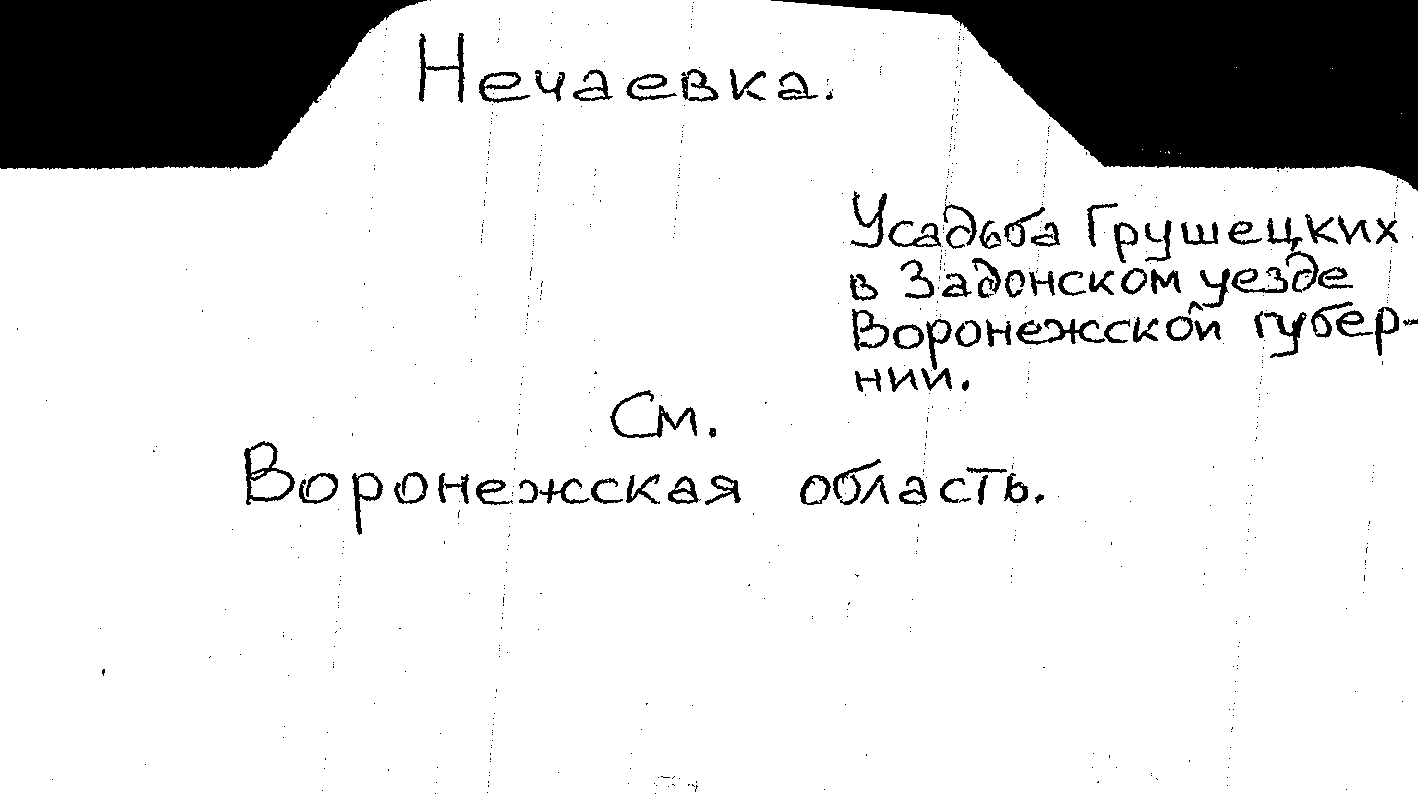 Нечаевка.
Усадьба Грушецких
в Задонском уезде
Воронежской губер-
нии.
См.
Воронежская область.